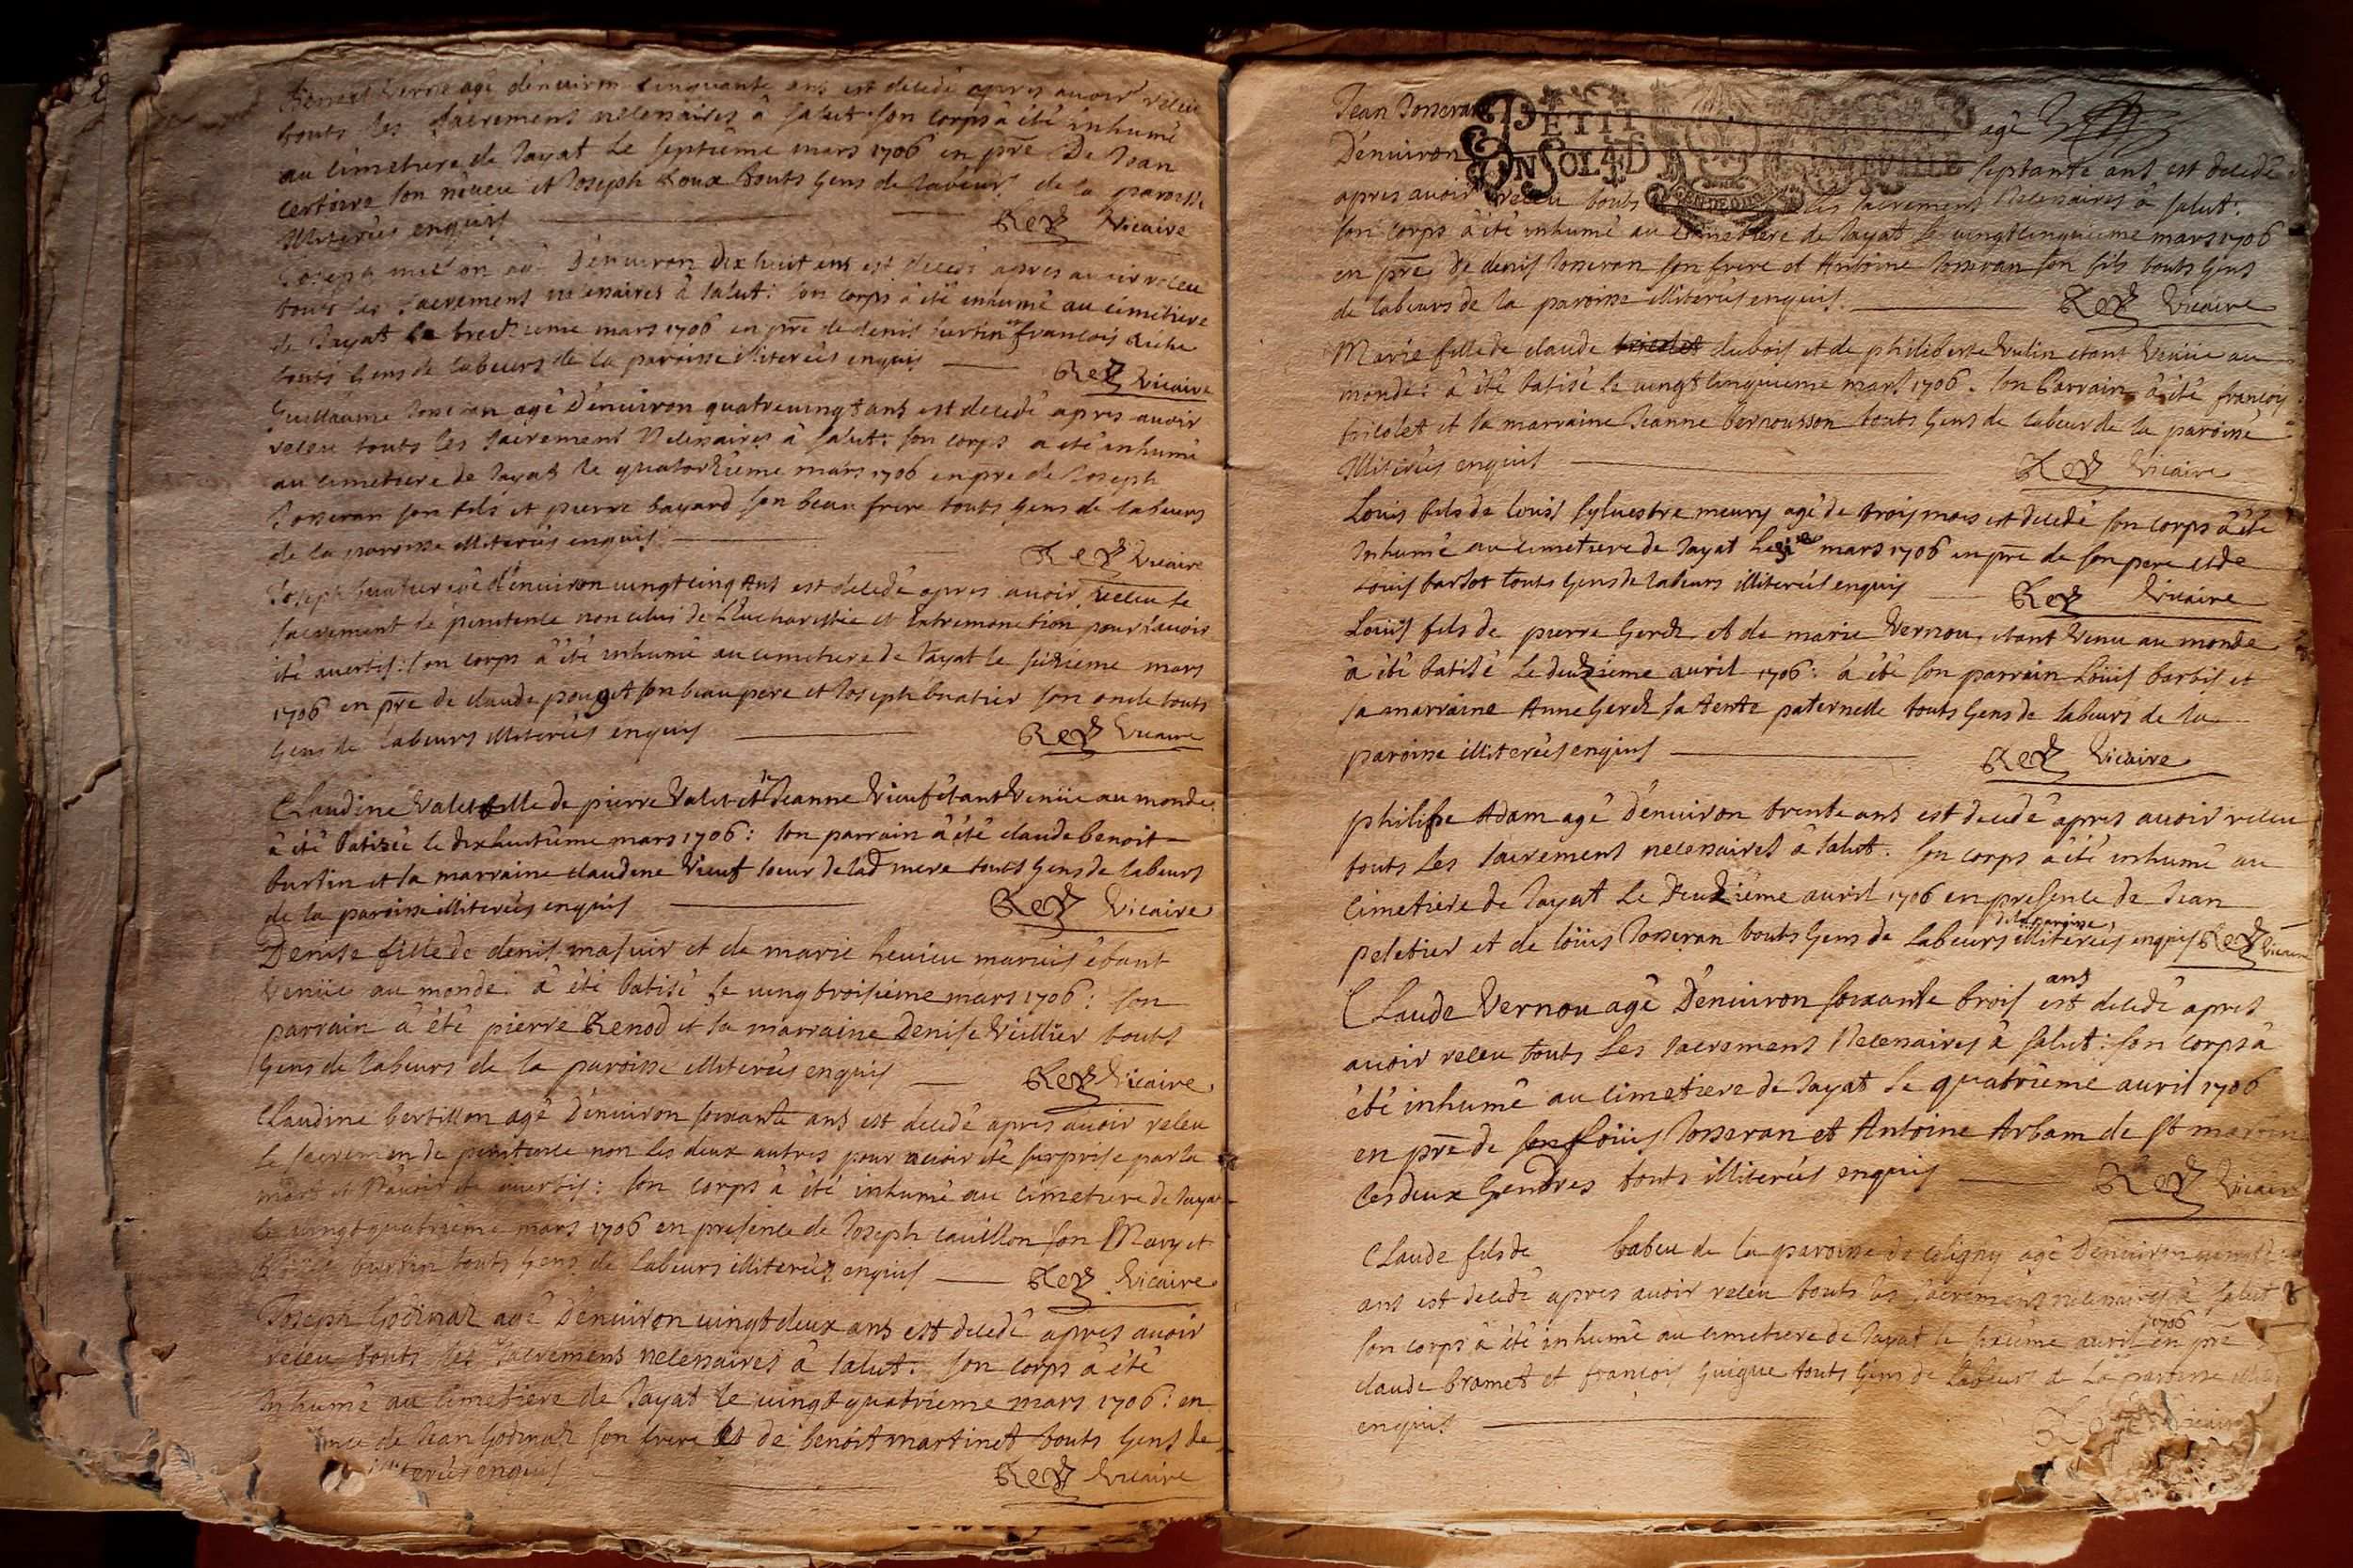 agé d'enuiron cinquante ans est decedé apres auoir receu
touts les sacrement necessaires â salut son corps â été inhumé
au cimetiere de Jayat le septiême mars 1706 en pre De Jean
son neueu et Joseph Roux touts gens de labeurs de la paroisse
illiterés enquis Rey Vicaire
Joseph agé D'enuiron dixhuit ans est decedé apres auoir receu
touts les sacrement necessaires â salut: son corps â été inhumé au cimetiere
de Jayat le treisieme mars 1706 en pre de denis burtin et francois
touts gens de labeurs de la paroisse illiterés enquis Rey Vicaire
Guillaume Josseran agé D'enuiron quatreuingt ans est decedé apres auoir
receu touts les sacrement Necessaires â salut: son corps a été inhumé
au cimetiere de Jayat le quatorzieme mars 1706 en pre de Joseph
Josseran son fils et pierre bayard son beau frere touts gens de labeurs
de la paroisse illiterés enquis Rey Vicaire
Joseph buatier agé d'enuiron uingtcinq ans est decedé apres auoir receu le
sacrement de penitence non celui de L'Eucharistie et pour
été auertis: son corps â été inhumé au cimetiere de Jayat le sixieme mars
1706 en pre de claude pouget son beau pere et Joseph buatier son oncle touts
gens de labeurs illiterés enquis Rey Vicaire
Claudine Valet fille de pierre Valet et de Jeanne Vieuf étant Venüe au monde:
â été batisée le dixhuitiême mars 1706: son parrain â été claude benoit
burtin et sa marraine claudine Vieuf soeur de lad mere touts gens de labeurs
de la paroisse illiterés enquis Rey Vicaire
Denise fille de denis masuir et de marie étant
Venüe au monde: â été batisé le uingtroisiéme mars 1706: son
parrain â été pierre Renod et sa marraine Denise Vüllier touts
gens de labeurs de la paroisse illiterés enquis Rey Vicaire
Claudine bertillon agé D'enuiron soixante ans est decedé apres auoir receu
le sacremen de penitence non les deux autres pour auoir été surprise par la
mort et N'auoir été auertis: son corps â été inhumé au cimetiere de Jayat
le uingtquatriême mars 1706 en presence de Joseph cauillon son Mary et
burtin touts gens de labeurs illiterés enquis Rey Vicaire
Joseph Godinaz agé D'enuiron uingtdeux ans est decedé apres auoir
receu touts les sacremens necessaires â salut: son corps â été
Inhumé au cimetiere de Jayat le uingtquatriême mars 1706: en
de Jean Godinaz son frere et de benoit martinet touts gens de
illiterés enquis Rey Vicaire
Jean Josseran agé
D'enuiron septante ans est decedé
PETIT
IN SOL 4 D
apres auoir receu touts les sacrement Necessaires â salut:
son corps â été inhumé au cimetiere de Jayat le uingtcinquieme mars 1706
en pre de denis Josseran son frere et Antoine Josseran son fils touts gens
de labeurs de la paroisse illiterés enquis. Rey Vicaire
Marie fille de claude dubois et de philiberte Vulin etant Venüe au
monde: â été batisé le uingtcinquieme mars 1706. son Parrain â été francois
tricolet et sa marraine Jeanne bernousson touts gens de labeur de la paroisse
Illiterés enquis Rey Vicaire
Louis fils de Louis syluestre meury agé de trois mois est decedé son corps â été
Inhumé au cimetiere de Jayat le mars 1706 en pre de son pere et de
Louis barbot touts gens de labeurs illiterés enquis Rey Vicaire
Loüis fils de pierre gerdz et de marie Vernou, etant Venu au monde
â été batisé le deuzieme auril 1706: â été son parrain Loüis barbis et
sa marraine Anne gerdz sa tente paternelle touts gens de labeurs de la
paroisse illiterés enquis Rey Vicaire
philipe Adam agé D'enuiron trente ans est decedé apres auoir receu
touts les sacrement necessaires â salut. son corps â été inhumé au
cimetiere de Jayat le Deuzième auril 1706 en presence de Jean
de la paroisse
peletier et de Loüis Josseran touts gens de labeurs illiterés enquis Rey Vicaire
ans
Claude Vernou agé D'enuiron soixante trois est decedé apres
auoir receu touts les sacrement Necessaires â salut: son corps â
été inhumé au cimetiere de Jayat le quatriême auril 1706
en pre de Loüis Josseran et Antoine Arbam de st martin
ces deux gendres touts illiterés enquis Rey Vicaire
Claude fils de babeu de la paroisse de coligny agé D'enuiron
ans est decedé apres auoir receu touts les sacremens necessaires â salut
1706
son corps â été inhumé au cimetiere de Jayat le sixieme auril en pre
claude bramet et francois guigue touts gens de labeurs de La paroisse
enquis Vicaire